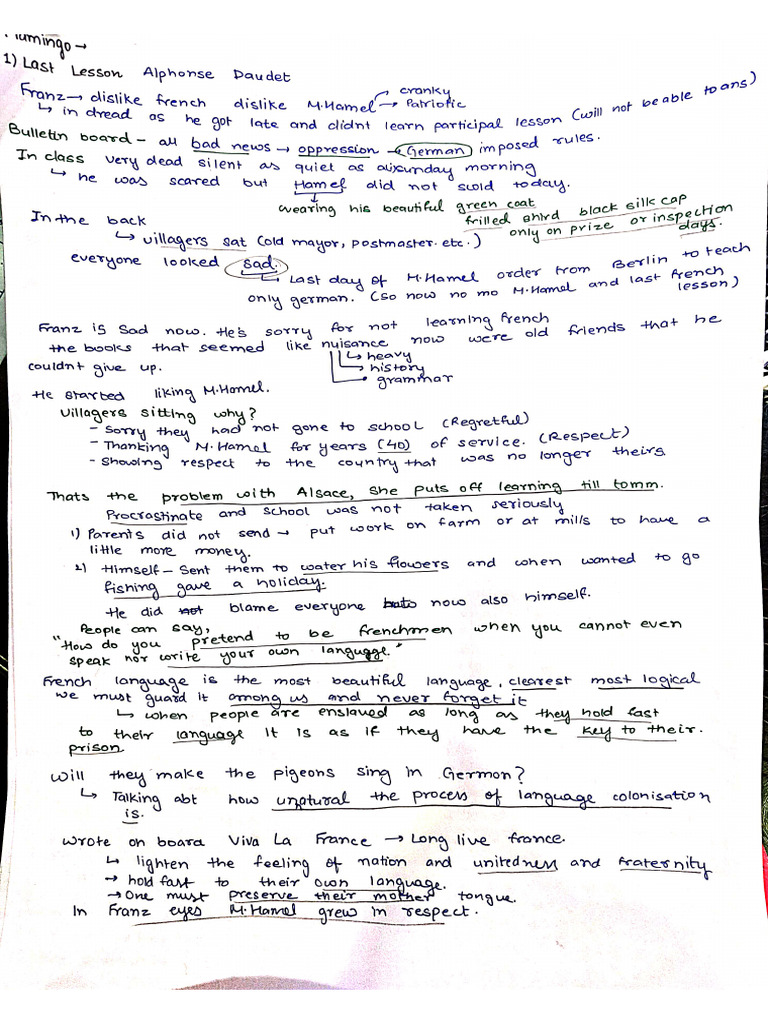 Flamingo →
1) Last Lesson Alphonse Daudet
Franz → dislike french dislike M.Hamel → cranky → Patriotic
↳ in dread as he got late and didnt learn participal lesson (will not be able to ans)
Bulletin board - all bad news → oppression → German imposed rules.
In class very dead silent as quiet as a sunday morning
↳ he was scared but Hamel did not scold today.
↓ wearing his beautiful green coat frilled shird black silk cap
only on prize or inspection days.
In the back
↳ villagers sat (old mayor, postmaster etc.)
everyone looked sad.
↳ Last day of M.Hamel order from Berlin to teach
only german. (so now no mo M.Hamel and last french lesson)
Franz is sad now. He's sorry for not learning french
the books that seemed like nuisance now were old friends that he
couldnt give up.
↳ heavy
→ history
→ grammar
He started liking M.Hamel.
Villagers sitting why?
- Sorry they had not gone to school (Regretful)
- Thanking M.Hamel for years (40) of service. (Respect)
- Showing respect to the country that was no longer theirs
Thats the problem with Alsace, she puts off learning till tomm.
Procrastinate and school was not taken seriously
1) Parents did not send → put work on farm or at mills to have a
little more money.
2) Himself - Sent them to water his flowers and when wanted to go
fishing gave a holiday.
He did blame everyone now also himself.
People can say,
"How do you pretend to be frenchmen when you cannot even
speak nor write your own langugge."
French language is the most beautiful language, clearest most logical
we must guard it among us and never forget it
↳ when people are enslaved as long as they hold fast
to their language it is as if they have the key to their.
prison
will they make the pigeons sing in Germon?
↳ Talking abt how unatural the process of language colonisation
is.
wrote on board Viva La France → Long live france.
↳ lighten the feeling of nation and unitedness and fraternity
→ hold fast to their own language.
→ One must preserve their mother tongue.
In Franz eyes M.Hamel grew in respect.